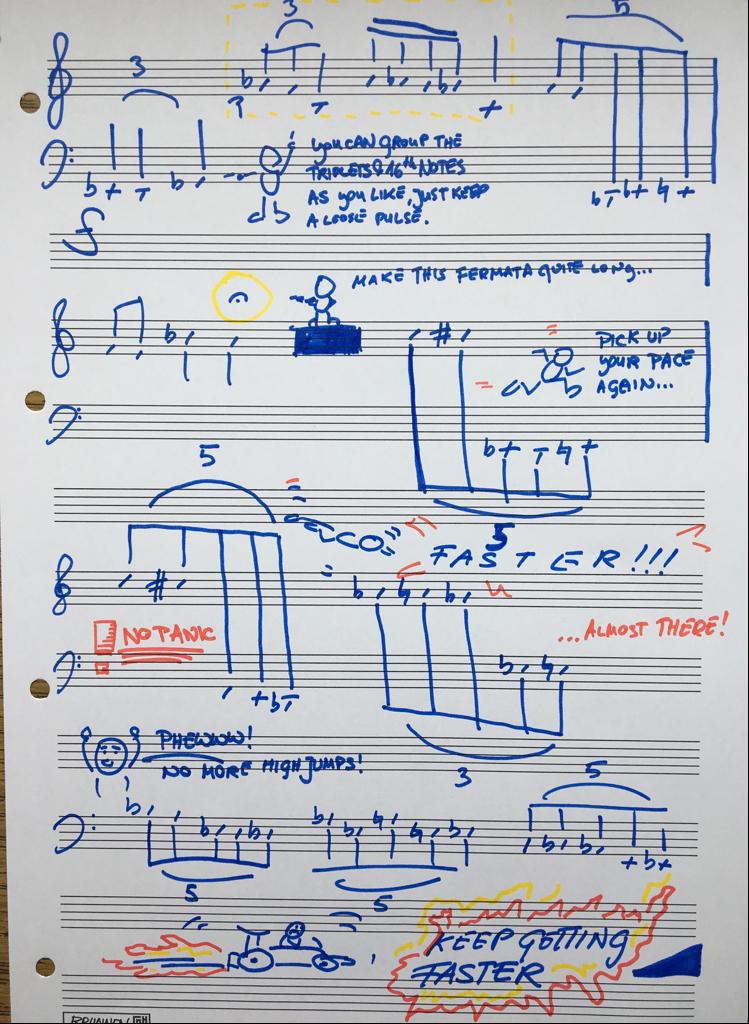 3
5
3
YOU CAN GROUP THE
TRIPLETS & 16th NOTES
AS YOU LIKE, JUST KEEP
A LOOSE PULSE.
MAKE THIS FERMATA QUITE LONG...
PICK UP
YOUR PACE
AGAIN...
5
5
FASTER!!!
NO PANIC
...ALMOST THERE!
PHEWWW!
NO MORE HIGH JUMPS!
3
5
5
5
KEEP GETTING
FASTER